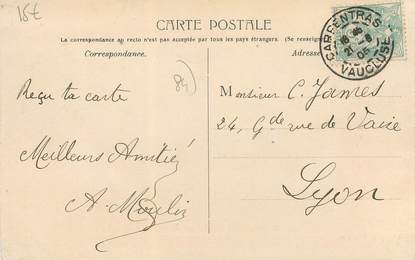 15€
CARTE POSTALE
La correspondance au recto n'est pas acceptée par tous les pays étrangers. (Se renseigner
Correspondance.
Adresse
CARPENTRAS
21 -8
05
VAUCLUSE
84)
Reçu ta carte
Meilleurs Amitiés
A. Moulin
Monsieur C. James
24, Gde rue de Vaise
Lyon